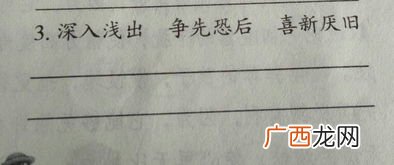 3. 深入浅出 争先恐后 喜新厌旧
广西龙网